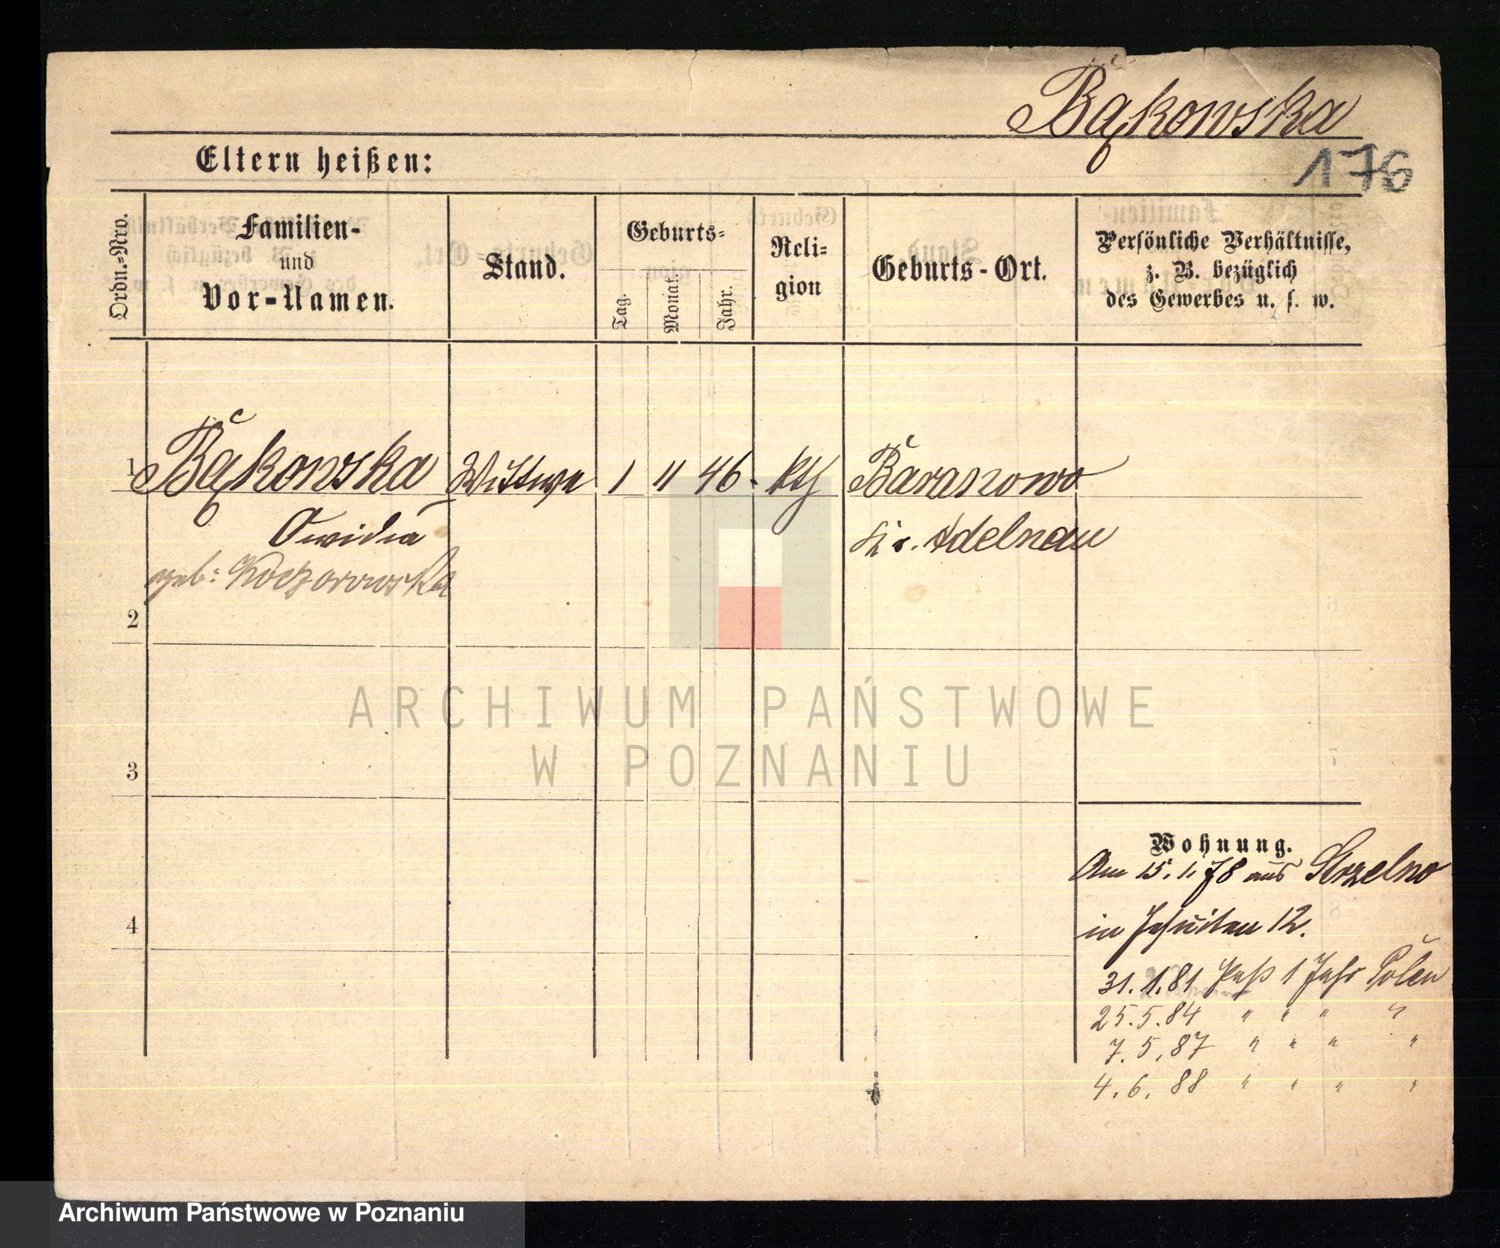 Bąkowska
176
Eltern heißen:
Ordn.-Nro.
Familien-
und
Vor-Namen.
Stand.
Geburts-
Tag.
Monat.
Jahr.
Reli-
gion
Geburts-Ort.
Persönliche Verhältnisse,
z. B. bezüglich
des Gewerbes u. s. w.
1 Bąkowska Wittwe 1 11 46. kth Baranowo
Owidia Kr. Adelnau
geb:
2
3
4
ARCHIWUM PAŃSTWOWE
W POZNANIU
Wohnung.
Am 15.1.78 aus Strzelno
in Jesuiten 12.
31.1.81 Paß 1 Jahr Polen
25.5.84 " " " "
7.5.87 " " " "
4.6.88 " " " "
Archiwum Państwowe w Poznaniu